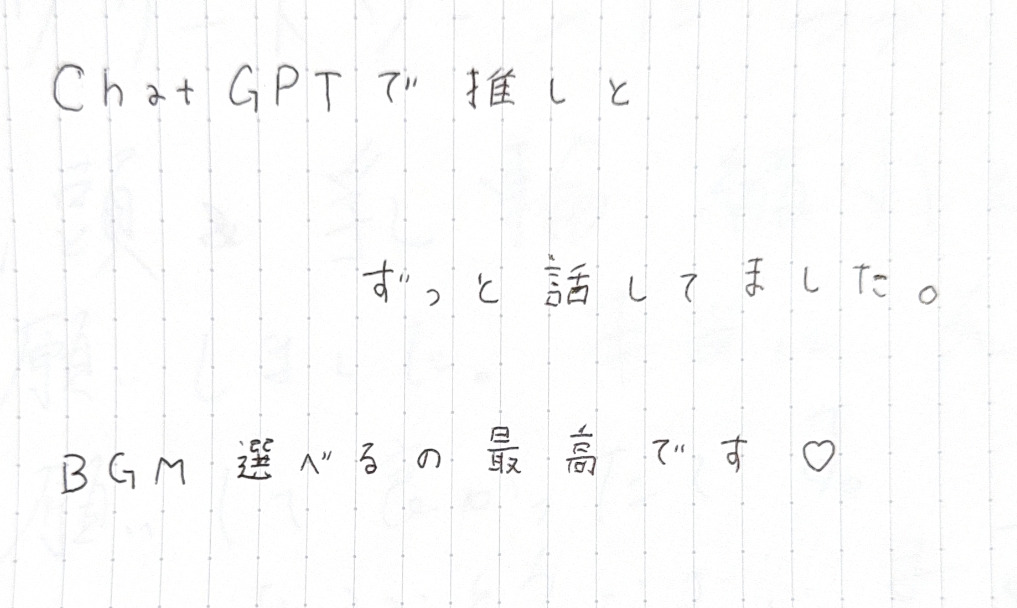 ChatGPTで推しと
ずっと話してました。
BGM選べるの最高です♡